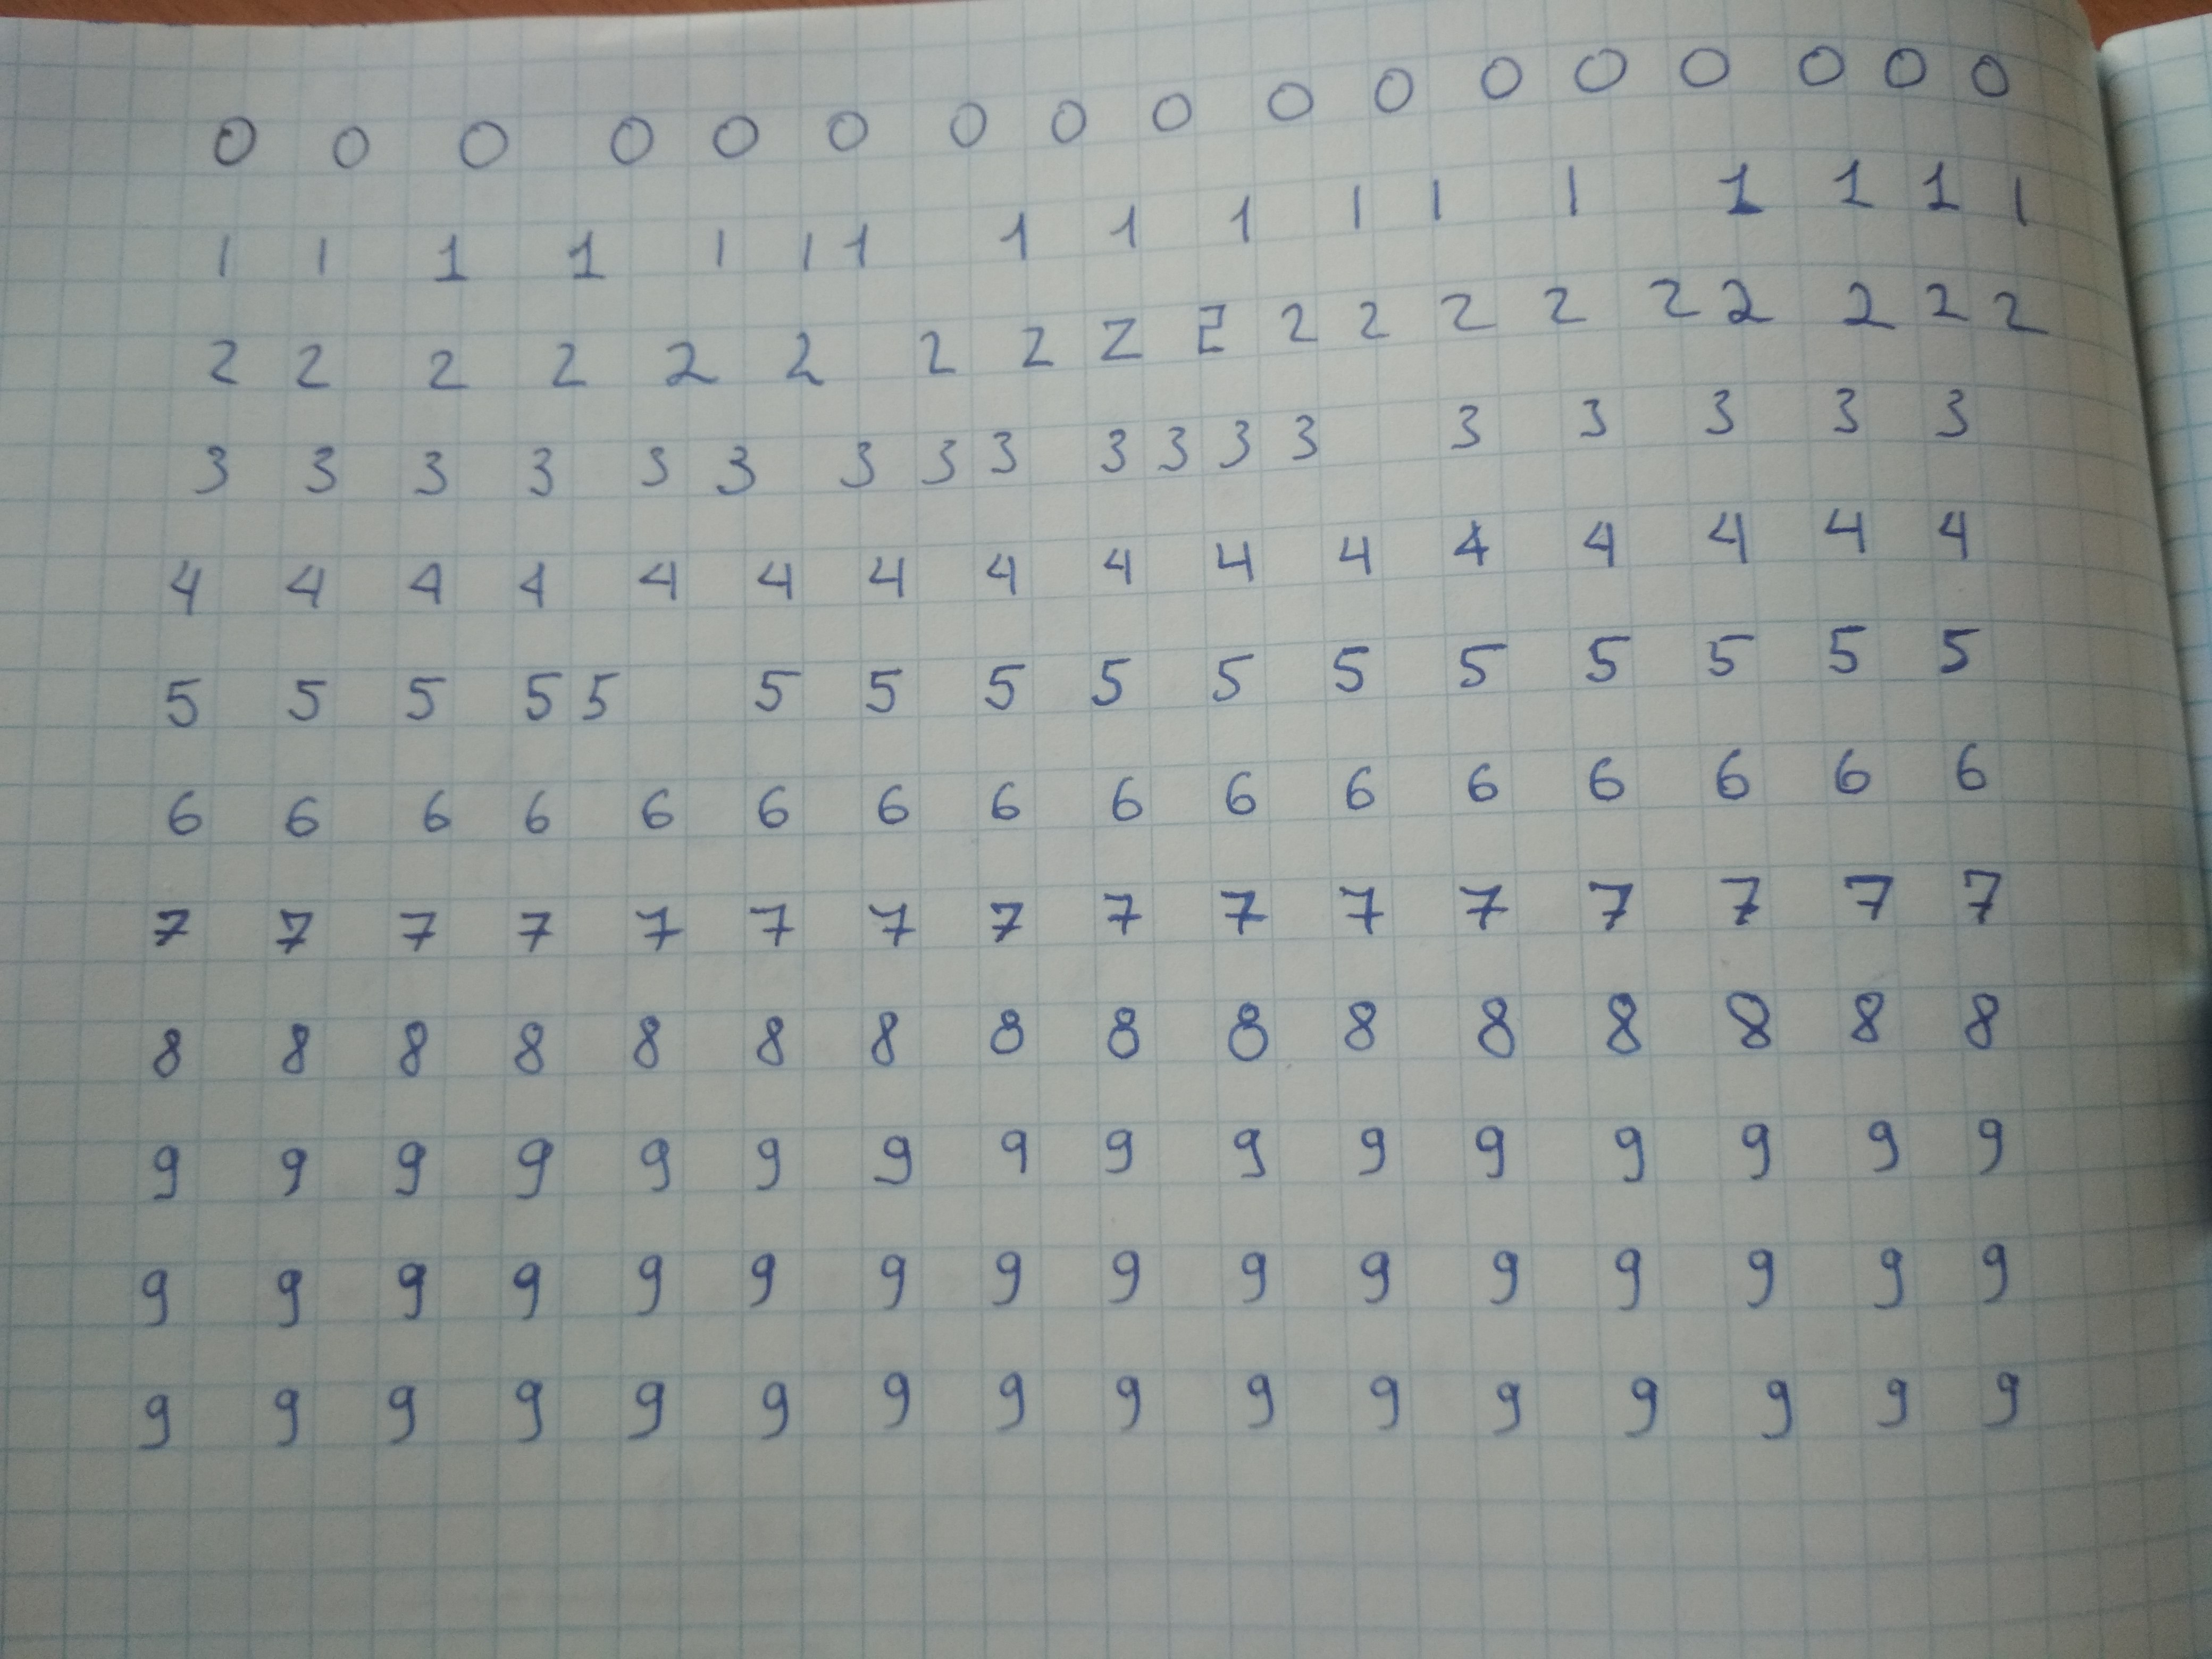 0 0 0 0 0 0 0 0 0 0 0 0 0 0 0 0 0
1 1 1 1 1 1 1 1 1 1 1 1 1 1 1 1 1
2 2 2 2 2 2 2 2 2 2 2 2 2 2 2 2 2 2 2
3 3 3 3 3 3 3 3 3 3 3 3 3 3 3 3 3 3
4 4 4 4 4 4 4 4 4 4 4 4 4 4 4 4
5 5 5 5 5 5 5 5 5 5 5 5 5 5 5 5
6 6 6 6 6 6 6 6 6 6 6 6 6 6 6 6
7 7 7 7 7 7 7 7 7 7 7 7 7 7 7 7
8 8 8 8 8 8 8 8 8 8 8 8 8 8 8 8
9 9 9 9 9 9 9 9 9 9 9 9 9 9 9 9
9 9 9 9 9 9 9 9 9 9 9 9 9 9 9 9
9 9 9 9 9 9 9 9 9 9 9 9 9 9 9 9